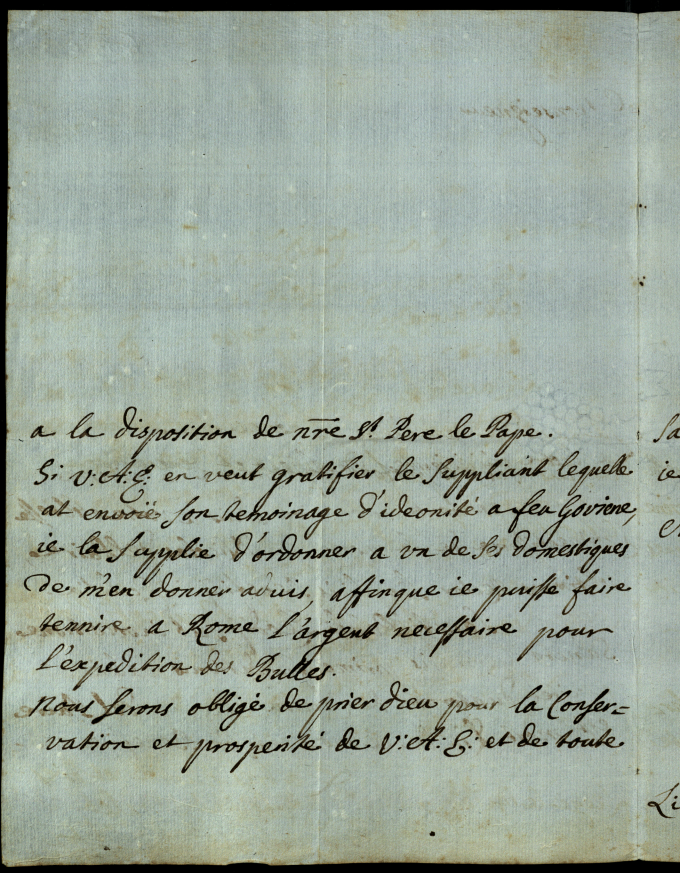 a la disposition de nr̅e S.t Pere le Pape.
Si V:A:E: en veut gratifier le Suppliant lequelle
at envoié son temoinage d'ideonité a feu Goviene,
ie la supplie d'ordonner a vn de ses domestiques
de m'en donner aduis, affinque ie puisse faire
tennire a Rome l'argent necessaire pour
l'expedition des Bulles.
nous serons obligé de prier dieu pour la Conser=
vation et prosperité de V:A:E: et de toute
Sa
ie
Li